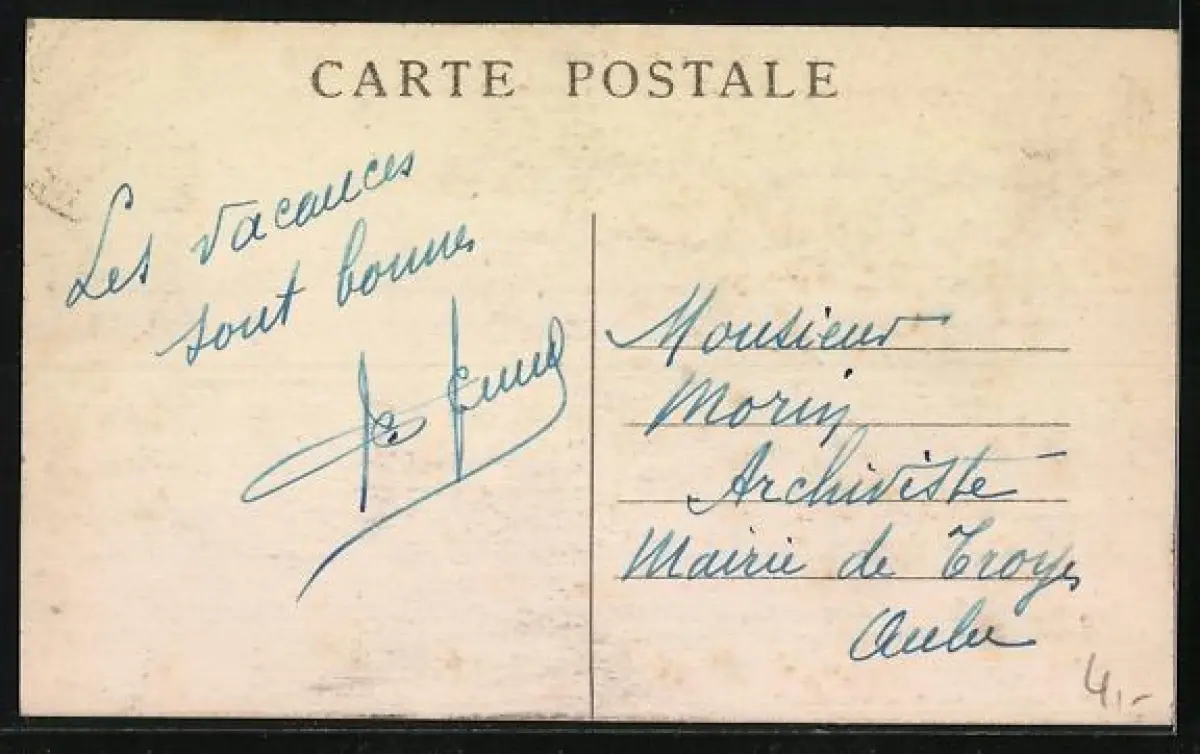 CARTE POSTALE
Les vacances
sont bonnes
Monsieur
Morin
Archiviste
Mairie de Troyes
Aube
4,-